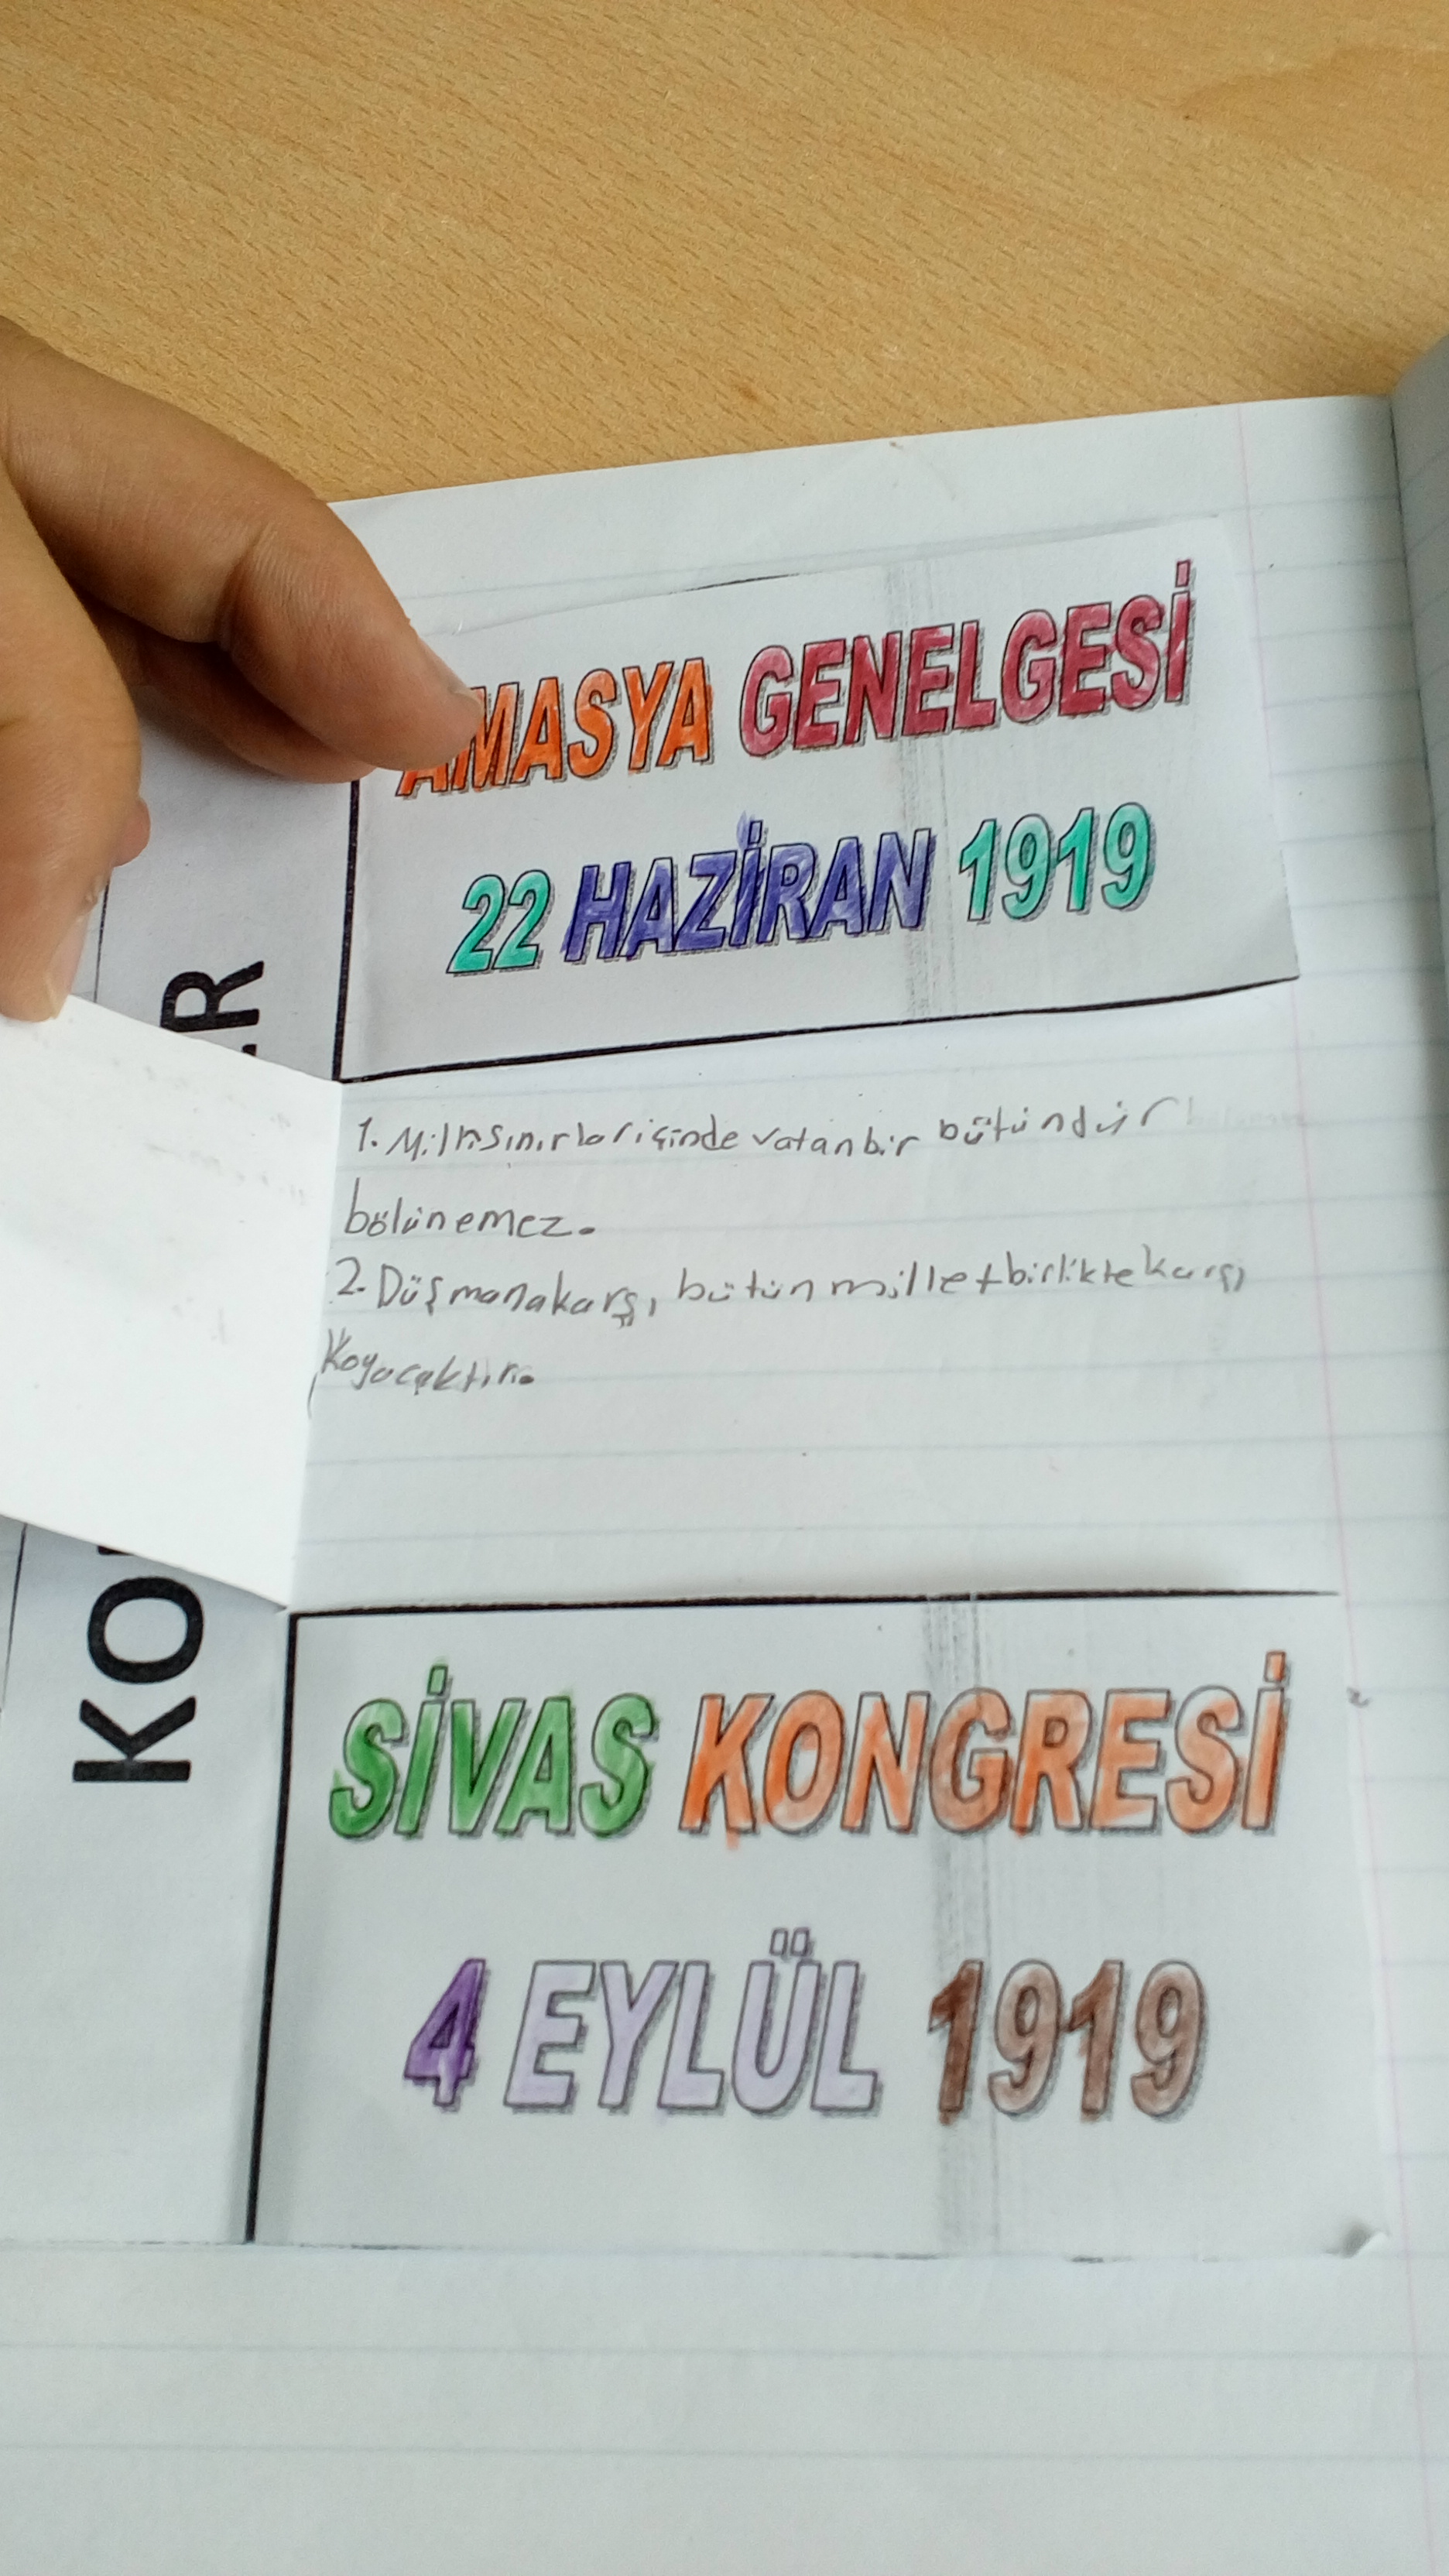 AMASYA GENELGESİ
22 HAZİRAN 1919
1. Milli sınırlar içinde vatan bir bütündür
bölünemez.
2. Düşmana karşı bütün millet birlikte karşı
koyacaktır.
SİVAS KONGRESİ
4 EYLÜL 1919
R
KO